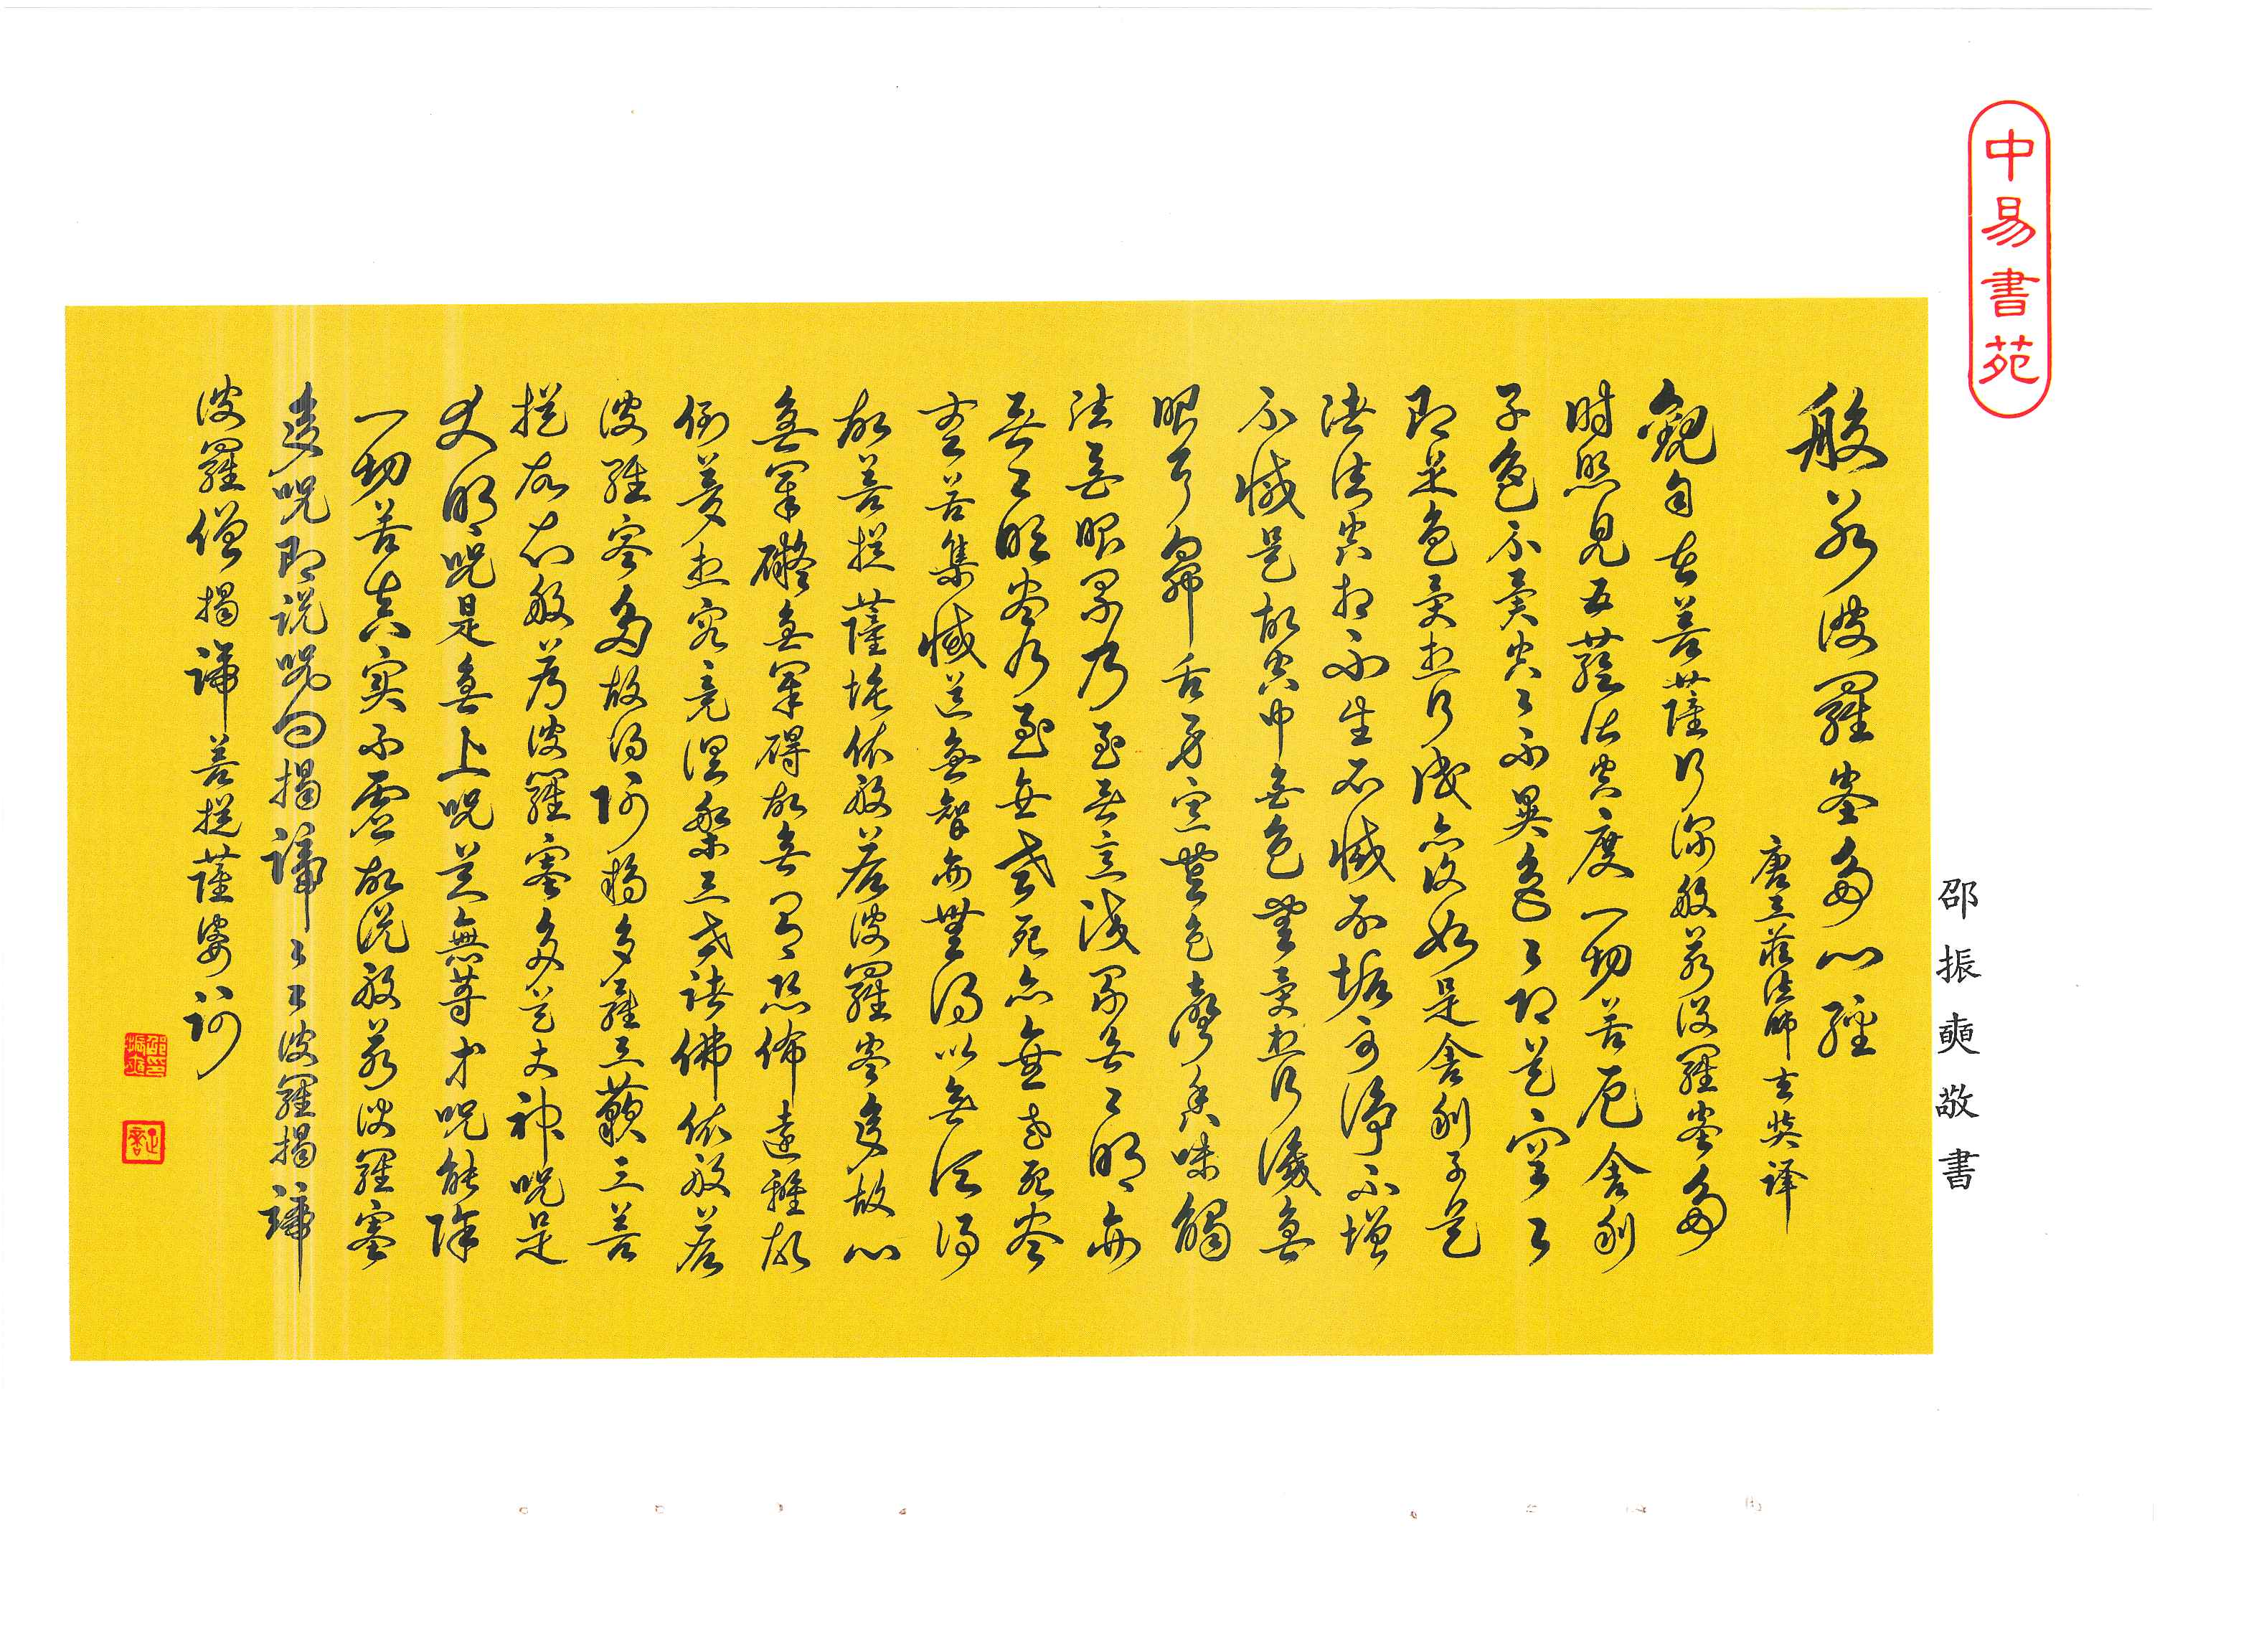 中易書苑
邵振奭敬書
般若波羅蜜多心經
唐三藏法師玄奘译
觀自在菩薩行深般若波羅蜜多
时照見五蘊皆空度一切苦厄舍利
子色不異空〻不異色〻即是空〻
即是色受想行識亦復如是舍利子是
諸法空相不生不滅不垢不淨不增
不減是故空中無色無受想行識無
眼耳鼻舌身意無色聲香味觸
法無眼界乃至無意識界無〻明亦
無〻明盡乃至無老死亦無老死盡
無苦集滅道無智亦無得以無所得
故菩提薩埵依般若波羅蜜多故心
無罣礙無罣碍故無有恐怖遠離顛
倒夢想究竟涅槃三世諸佛依般若
波羅蜜多故得阿耨多羅三藐三菩
提故知般若波羅蜜多是大神咒是
大明咒是無上咒是無等等咒能除
一切苦真實不虛故说般若波羅蜜
多咒即说咒曰揭諦〻〻波羅揭諦
波羅僧揭諦菩提薩婆訶